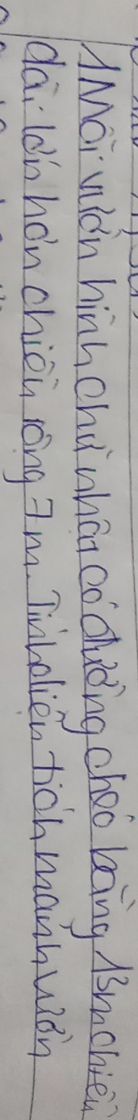 1 Mỗi vườn hình chữ nhật có đường chéo bằng 13m chiều
dài lớn hơn chiều rộng 7m. Tính diện tích mảnh vườn